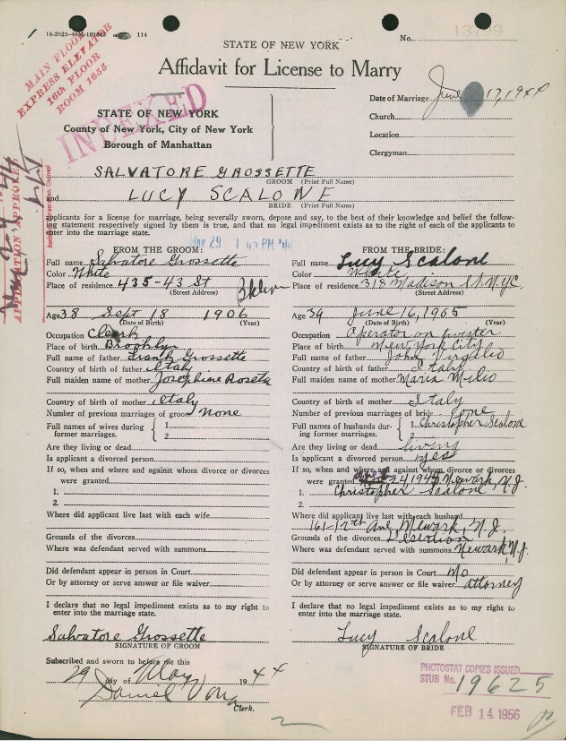 134
No. 13799
STATE OF NEW YORK
MAIN FLOOR
EXPRESS ELEVATOR
16th FLOOR
ROOM 1655
Affidavit for License to Marry
Date of Marriage June 17, 1944
INDEXED
STATE OF NEW YORK
County of New York, City of New York
Borough of Manhattan
Church
Location
Clergyman
SALVATORE GROSSETTE
GROOM (Print Full Name)
and LUCY SCALONE
BRIDE (Print Full Name)
applicants for a license for marriage, being severally sworn, depose and say, to the best of their knowledge and belief the follow-
ing statement respectively signed by them is true, and that no legal impediment exists as to the right of each of the applicants to
enter into the marriage state.
APPLICATION APPROVED
May 29 1 47 PM '44
FROM THE GROOM:
Full name Salvatore Grossette
Color White
Place of residence 435-43 St Bklyn
(Street Address)
Age 38 Sept 18 1906
(Date of Birth) (Year)
Occupation Clerk
Place of birth Brooklyn
Full name of father Frank Grossette
Country of birth of father Italy
Full maiden name of mother Josephine
Country of birth of mother Italy
Number of previous marriages of groom None
Full names of wives during former marriages. 1.
2.
Are they living or dead
Is applicant a divorced person
If so, when and where and against whom divorce or divorces
were granted
1.
2.
Where did applicant live last with each wife
Grounds of the divorces
Where was defendant served with summons
Did defendant appear in person in Court
Or by attorney or serve answer or file waiver
I declare that no legal impediment exists as to my right to
enter into the marriage state.
Salvatore Grossette
SIGNATURE OF GROOM
FROM THE BRIDE:
Full name Lucy Scalone
Color White
Place of residence 318 Madison St. N.Y.C.
(Street Address)
Age 39 June 16, 1905
(Date of Birth) (Year)
Occupation Operator on
Place of birth New York City
Full name of father John Virgilio
Country of birth of father Italy
Full maiden name of mother Maria Milio
Country of birth of mother Italy
Number of previous marriages of bride one
Full names of husbands dur-
ing former marriages. 1. Christopher Scalone
2.
Are they living or dead living
Is applicant a divorced person yes
If so, when and where and against whom divorce or divorces
were granted 24, 1942 Newark, N.J.
1. Christopher Scalone
2.
Where did applicant live last with each husband
161-12th Ave Newark, N.J.
Grounds of the divorces Desertion
Where was defendant served with summons Newark, N.J.
Did defendant appear in person in Court no
Or by attorney or serve answer or file waiver attorney
I declare that no legal impediment exists as to my right to
enter into the marriage state.
Lucy Scalone
SIGNATURE OF BRIDE
Subscribed and sworn to before me this
29 day of May 1944
Daniel
Clerk.
PHOTOSTAT COPIES ISSUED
STUB No. 19625
FEB 14 1956